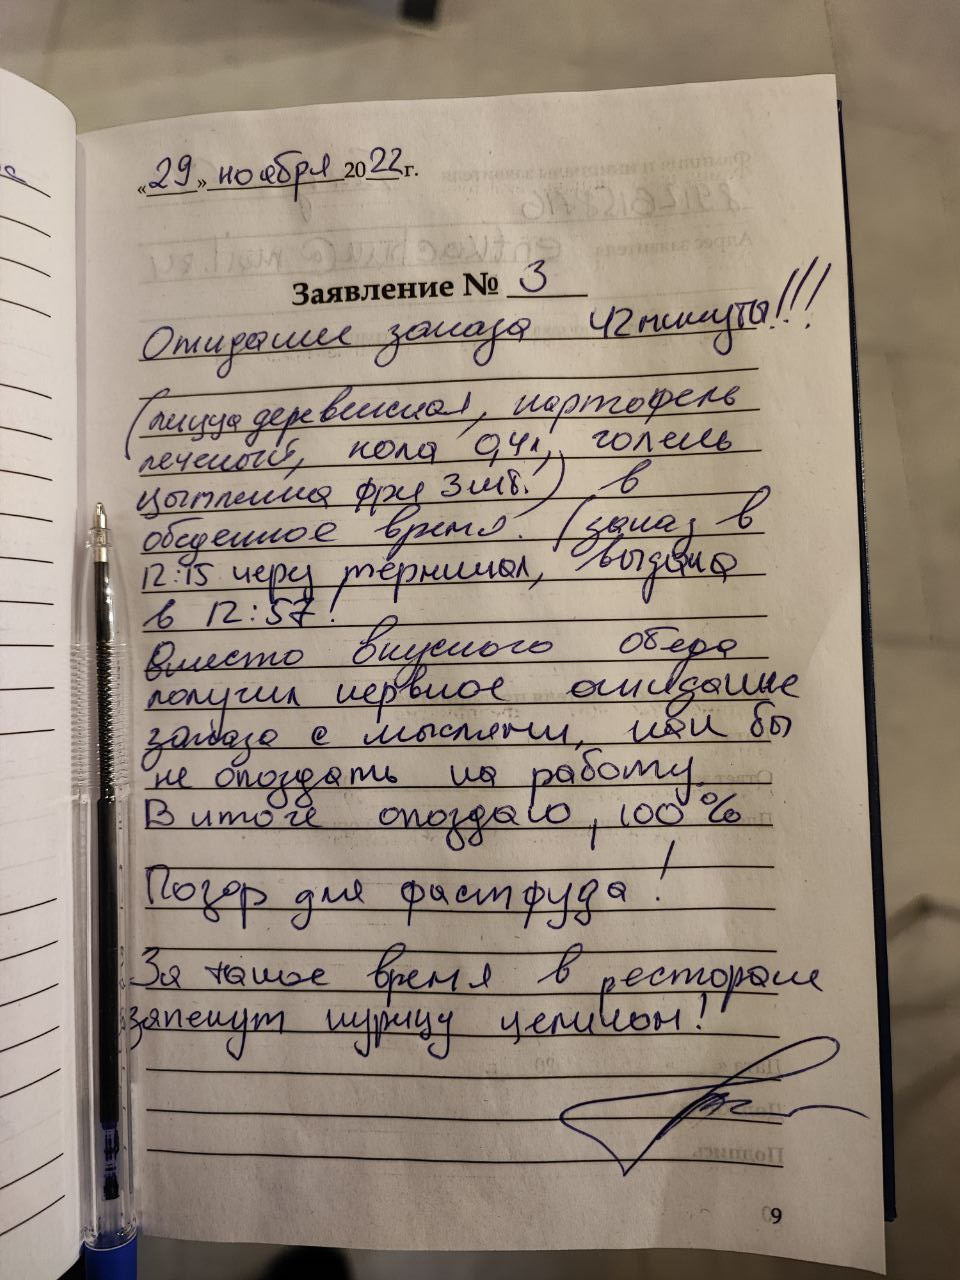 «29» ноября 2022 г.
Заявление № 3
Ожидание заказа 42 минуты!!!
(пицца деревенская, картофель
печеный, кола 0,4л, голень
цыпленка фри 3 шт.) в
обеденное время. (заказ в
12:15 через терминал, выдача
в 12:57!
Вместо вкусного обеда
получил нервное ожидание
заказа с мыслями, как бы
не опоздать на работу.
В итоге опоздаю, 100%
Позор для фастфуда!
За такое время в ресторане
запекут курицу целиком!
9